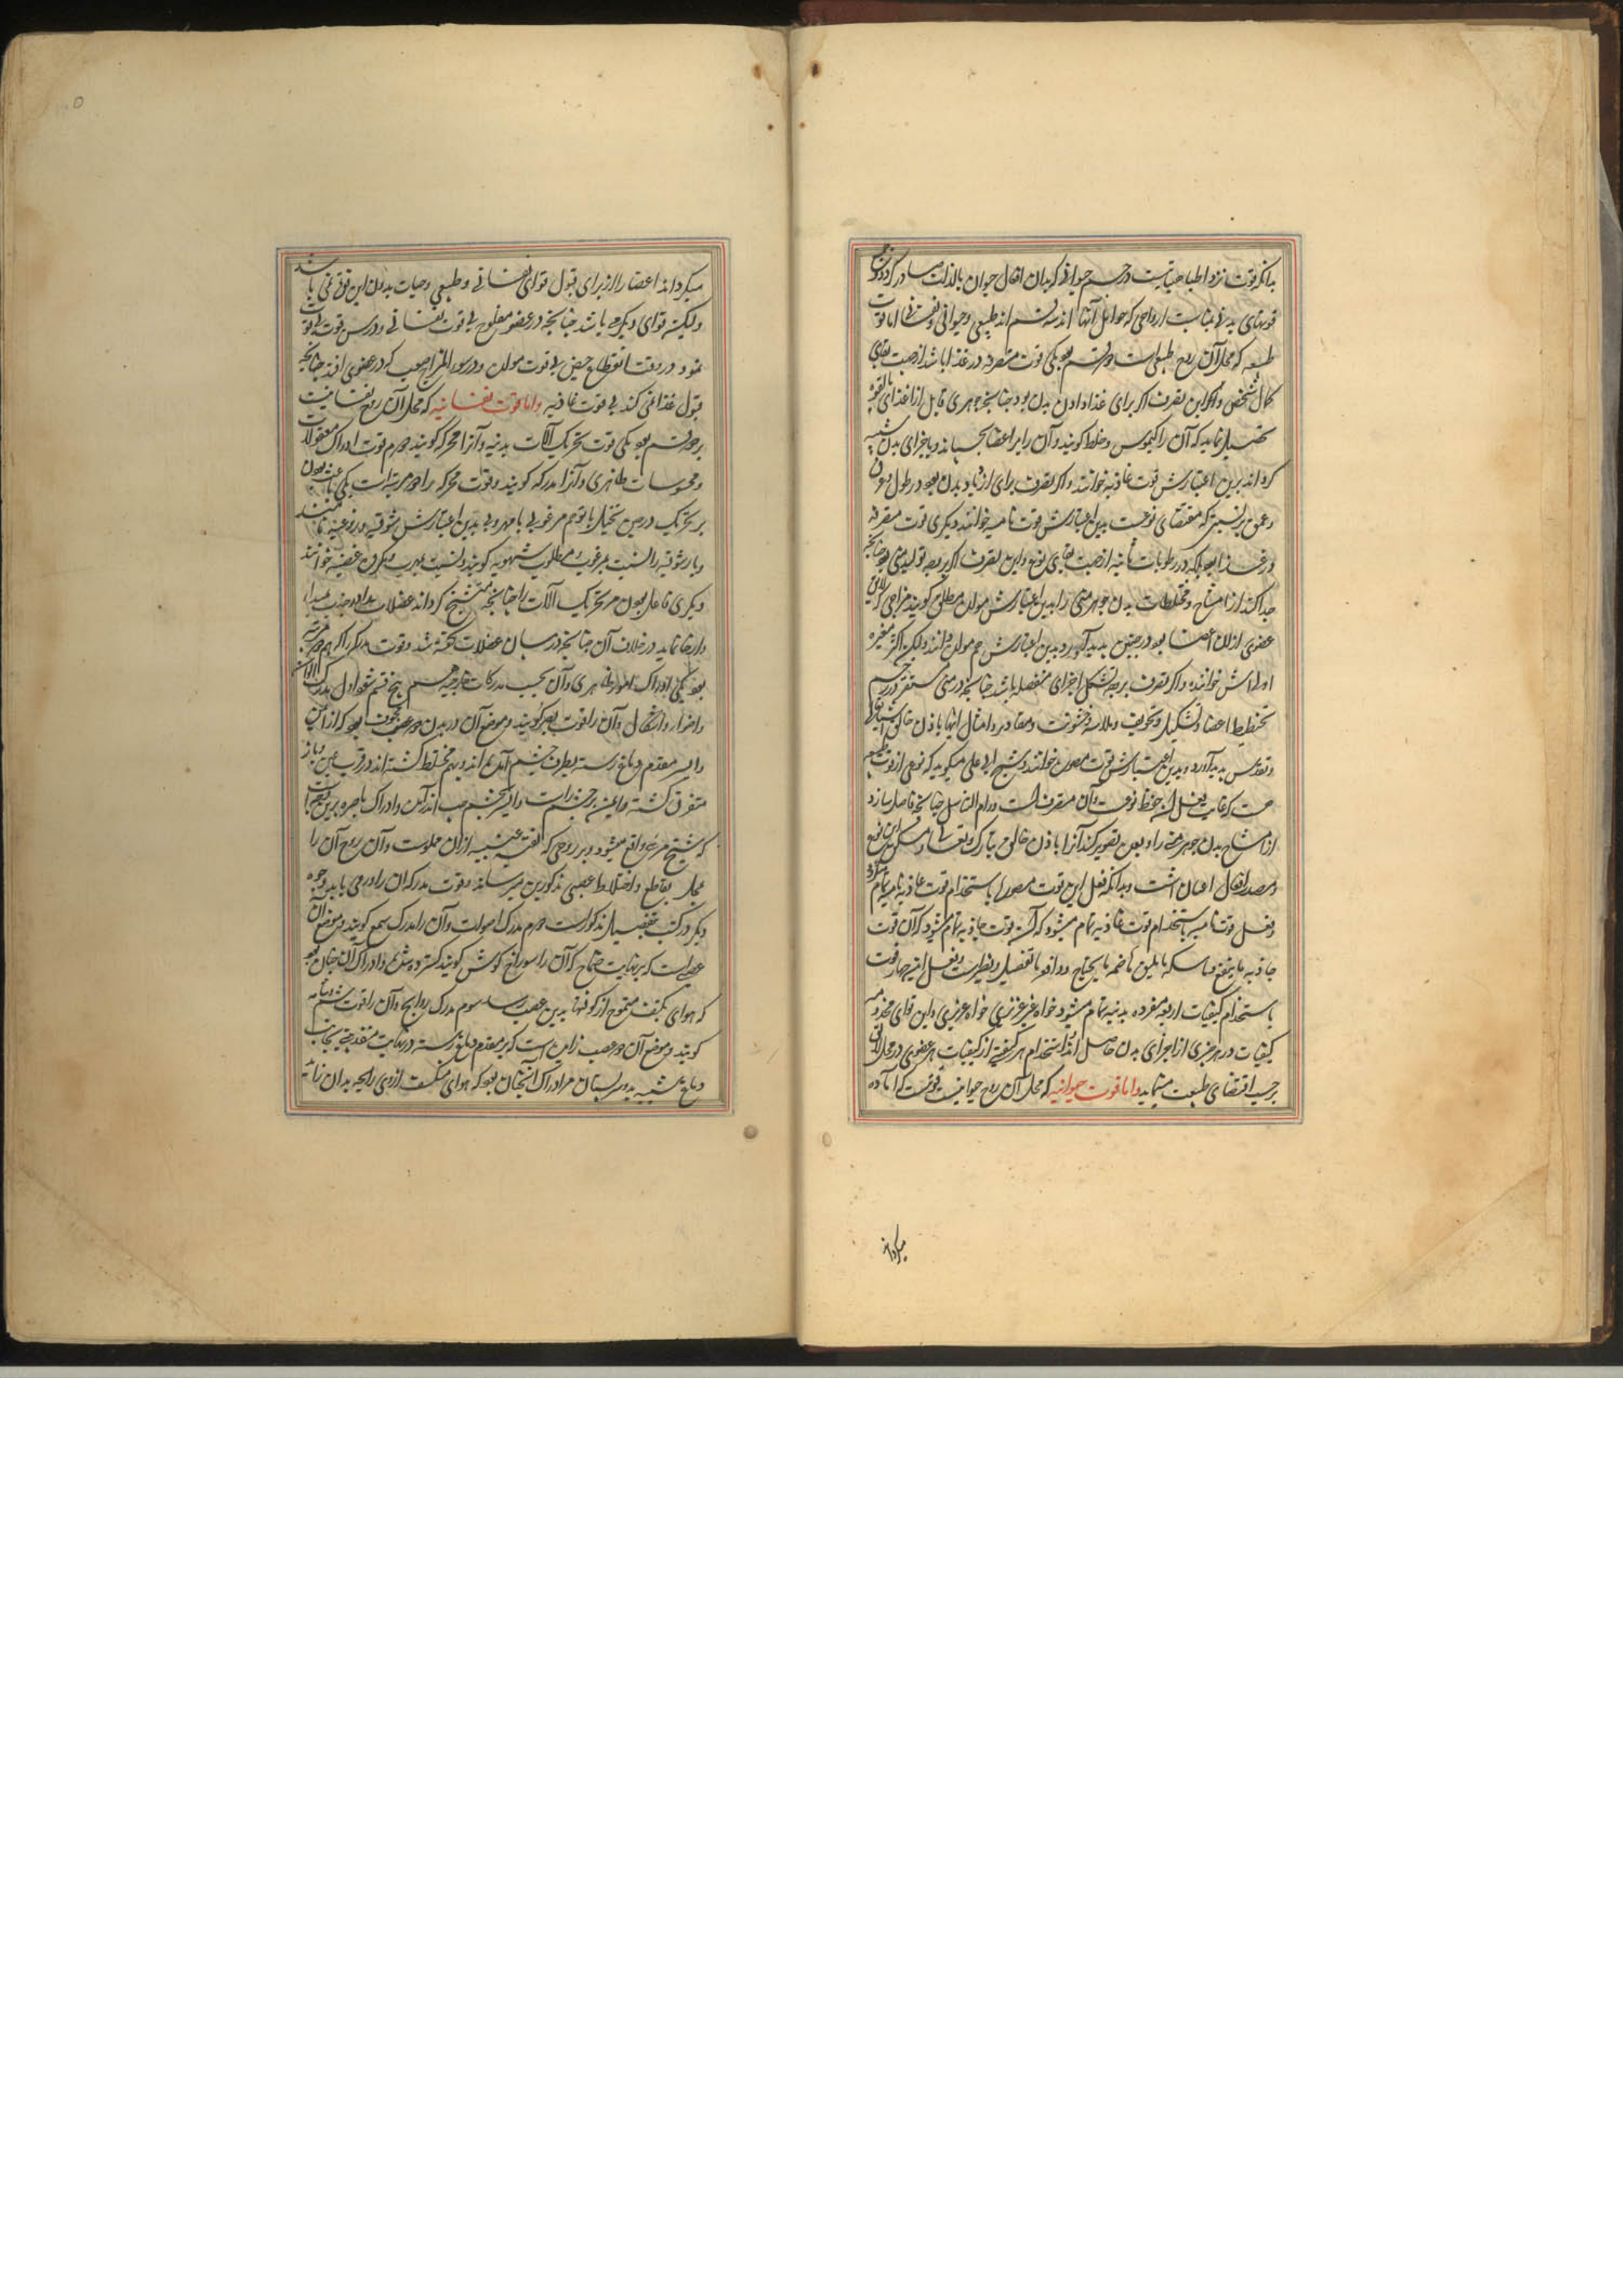 بدانکه قوت نزد اطبا هیئتیست در جسم حیوانی که بدان افعال حیوان بالذات صادر گردد و
قوتهای بدنی بمناسبت ارواحی که حوامل آنها اند سه قسم اند طبیعی و حیوانی و نفسانی اما قوت
طبیعیه که محل آن روح طبیعی است دو قسم بود یکی قوت متصرفه در غذا باشد از جهت بقای
کمال شخص و این تصرف اگر برای غذا دادن بدن بود چنانچه جوهری قابل از غذای بالقوه
تحصیل نماید که آن را کیموس و خلط گویند و آن را بر اعضا بچسپاند و باجزای بدن شبیه
گرداند بدین اعتبارش قوت غاذیه خوانند و اگر تصرف برای ازدیاد بدن بود در طول و عرض
و عمق بر نسبتی که مقتضای نوعست بدین اعتبارش قوت نامیه خوانند دیگری قوت متصرفه
در غذا بود بلکه در رطوبات ثانیه از جهت بقای نوع و این تصرف اگر بوجه تولید منی بود چنانچه
جدا کند از امشاج و مختلطات بدن جوهر منی را بدین اعتبارش مولده مطلق گویند
عضوی ازان اعضا بود در جنین پدید آورد بدین اعتبارش هم مولده دانند و لیکن اکثر مغیره
اولی اش خوانند و اگر تصرف بوجه تشکیل اجزای منفصله باشد چنانچه در منی مستقر در رحم
تخطیط اعضا و تشکیل و تجویف و ملاست و خشونت و مقادیر و امثال اینها باذن خالق
و تقدس پدید آورد بدین اعتبارش قوت مصوره خوانند و شیخ ابو علی میگوید که نوعی از قوت طبیعیه
هست که غایت فعل آن حفظ نوعست و آن متصرف است در امر التناسل چنانچه فاصل سازد
از امشاج بدن جوهر منی را و بعده تصویر کند آنرا باذن خالق تبارک و تعالی و مسکن این نوع
و مصدر افعال او انثیان است و بدانکه فعل این قوت مصوره باستخدام قوت غاذیه و نامیه تمام میگردد
و فعل قوت نامیه باستخدام قوت غاذیه تمام میشود که آن قوت
جاذبه ما ینفع و ماسکه ما یلیق هاضمه ما یحتاج و دافعه و فعل این چهار قوت
باستخدام کیفیات اربعه مفرده بدنیه تمام میشود خواه غیر غریزی خواه غریزی و این قوای مخدومه
کیفیات در هر جزوی از اجزای بدن حاصل اند استخدام هر کیفیتی از کیفیات هر عضوی در محل لایق
بر حسب اقتضای طبیعت مینماید و اما قوت حیوانیه که محل آن روح حیوانیست قوتیست که آماده
میگرداند
میگرداند اعضا را از برای قبول قوای نفسانی و طبیعی و حیات بدون این قوتی نمی باشد
و لیکن قوای دیگر می باشد چنانچه در عضو مفلوج بی قوت نفسانی و در سن بی قوت
نمو و در وقت انقطاع حیض بی قوت مولده و در سوء المزاج صعب که در عضوی افتد چنانچه
قبول غذا نمی کند بی قوت غاذیه و اما قوت نفسانیه که محل آن روح نفسانیست
بر دو قسم بود یکی قوت تحریک آلات بدنیه و آنرا محرکه گویند دوم قوت ادراک معقولات
و محسوسات ظاهری و آنرا مدرکه گویند و قوت محرکه را دو مرتبه است یکی باعث بودن
بر تحریک در حین تخیل یا توهم مرغوبی یا مهروبی بدین اعتبارش شوقیه و نزوعیه نامند
و باز شوقیه را بنسبت مرغوب و مطلوب شهویه گویند و بنسبت مهروب و مکروه غضبیه خوانند
دیگری فاعل بودن مر تحریک آلات را چنانچه متشنج گرداند عضلات را
و ارخا نماید در خلاف آن چنانچه در بیان عضلات گفته شد و قوت مدرکه را هم دو مرتبه
بود یکی ادراک امور ظاهری و آن بحسب مدرکات خارجیه پنج قسم شود اول مدرک الوان
و اضواء و اشکال و آن را قوت بصر گویند و موضع آن در بدن دو عصب مجوف بود که از ایمن
و ایسر مقدم دماغ رسته بطرف چشم آمده اند و بهم مختلط گشته اند در قرب عین و باز
متفرق گشته و ایمن بر چشم راست و ایسر بچشم چپ اندر آمده و ادراک باصره برین وجه است
که شبح مرئی واقع میشود بر روحی که ثقبه عنبیه ازان مملوست و آن روح آن را
بمحل تقاطع و اختلاط عصبی مذکورین میرساند و قوت مدرکه آن را در می یابد و وجوه
دیگر در کتب بتفصیل مذکور است دوم مدرک اصوات و آن را مدرک سمع گویند و موضع آن
عصبی است که بر نهایت صماخ که آن را سوراخ گوش گویند گسترده شده و ادراک آن چنان بود
که هوای بکیفیت متموج از کوفتها بدین عصب رسد سوم مدرک روایح و آن را قوت شم
گویند و موضع آن دو عصب زاید است که از مقدم دماغ رسته در نهایت مقدم بجانب
دماغ شبیه بدو سر پستان مر ادراک آنچنان بود که هوای متکیف از ذی رایحه بدان